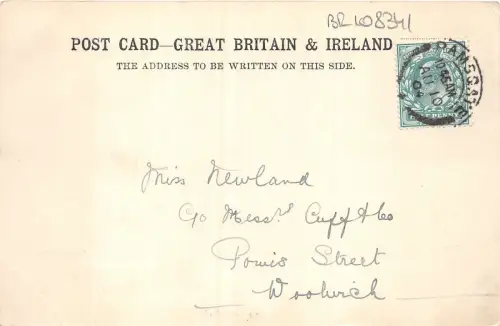 BR 108341
POST CARD—GREAT BRITAIN & IRELAND
THE ADDRESS TO BE WRITTEN ON THIS SIDE.
RAMSGATE
AU 10
04
Miss Newland
C/o Messrs Cuff & Co
Powis Street
Woolwich